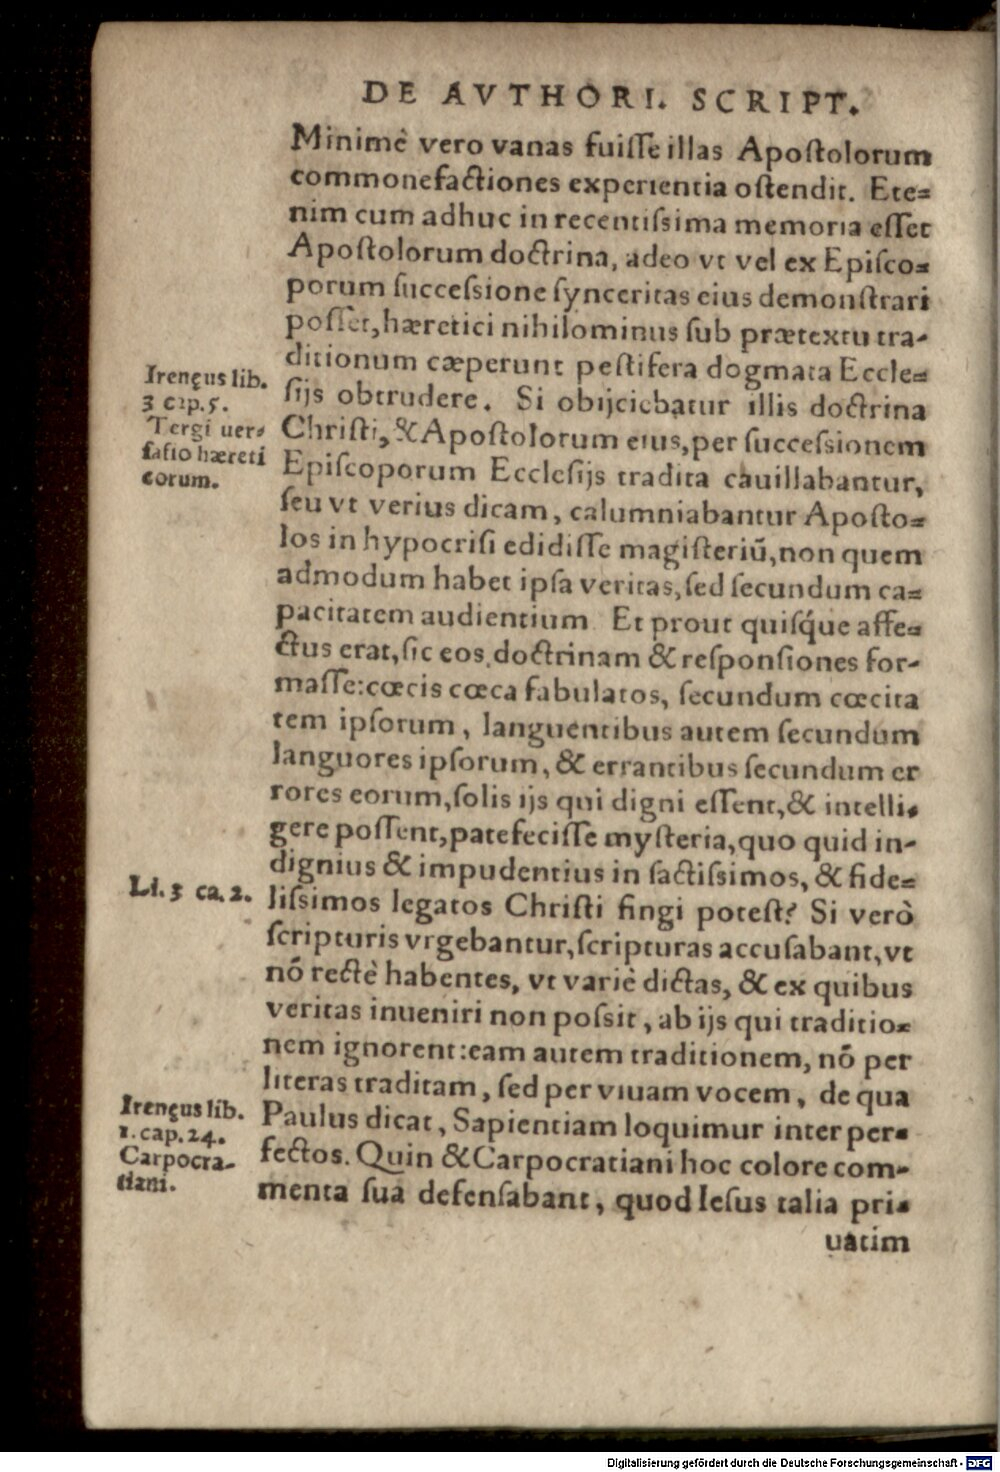 DE AVTHORI. SCRIPT.
Minimè vero vanas fuiſſe illas Apoſtolorum
commonefactiones experientia oſtendit. Ete=
nim cum adhuc in recentiſsima memoria eſſet
Apoſtolorum doctrina, adeo vt vel ex Epiſco=
porum ſucceſsione ſynceritas eius demonſtrari
poſſet, hæretici nihilominus ſub prætextu tra-
ditionum cæperunt peſtifera dogmata Eccle=
ſijs obtrudere. Si obijciebatur illis doctrina
Chriſti, & Apoſtolorum eius, per ſucceſsionem
Epiſcoporum Eccleſijs tradita cauillabantur,
ſeu vt verius dicam, calumniabantur Apoſto=
los in hypocriſi edidiſſe magiſteriū, non quem
admodum habet ipſa veritas, ſed ſecundum ca=
pacitatem audientium Et prout quiſq́ue affe=
ctus erat, ſic eos doctrinam & reſponſiones for-
maſſe: cœcis cœca fabulatos, ſecundum cœcita
tem ipſorum, languentibus autem ſecundum
languores ipſorum, & errantibus ſecundum er
rores eorum, ſolis ijs qui digni eſſent, & intelli-
gere poſſent, patefeciſſe myſteria, quo quid in-
dignius & impudentius in ſactiſsimos, & fide=
liſsimos legatos Chriſti fingi poteſt? Si verò
ſcripturis vrgebantur, ſcripturas accuſabant, vt
nō rectè habentes, vt variè dictas, & ex quibus
veritas inueniri non poſsit, ab ijs qui traditio=
nem ignorent: eam autem traditionem, nō per
literas traditam, ſed per viuam vocem, de qua
Paulus dicat, Sapientiam loquimur inter per-
fectos. Quin & Carpocratiani hoc colore com-
menta ſua defenſabant, quod Ieſus talia pri-
uatim
Irenęus lib.
3 cap. 5.
Tergi uer-
ſatio hæreti
corum.
Li. 3 ca. 2.
Irenęus lib.
1. cap. 24.
Carpocra-
tiani.
Digitalisierung gefördert durch die Deutsche Forschungsgemeinschaft - DFG